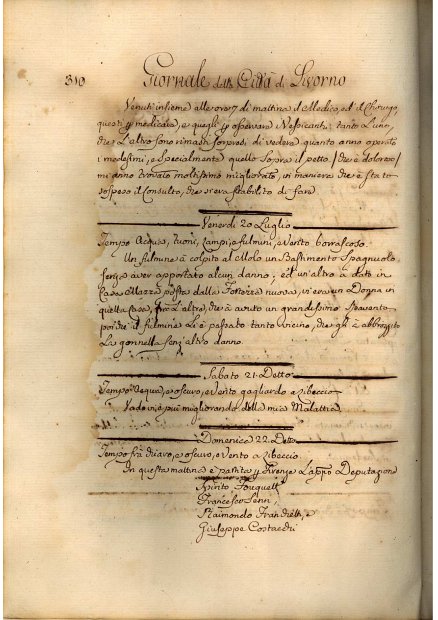 310 Giornale della Città di Livorno
Venuti insieme alle ore 7 di mattina il Medico, ed il Chirurgo,
questi p medicare, e quegli p osservare i Vessicanti; tanto l'uno,
che l'altro sono rimasti sorpresi di vedere quanto anno operato
i medesimi, e specialmente quello sopra il petto / che è doloroso /
mi anno trovato moltissimo migliorato, in maniera che è stato
sospeso il Consulto, che s'era stabilito di fare.
Venerdi 20 Luglio
Tempo Acqua, tuoni, lampi, e fulmini, e Vento borrascoso.
Un fulmine à colpito al Molo un Bastimento Spagnuolo
senza aver apportato alcun danno; ed un'altro à dato in
Casa posta dalla Fortezza nuova, vi era un Donna in
quella Casa, fra l'altre, che à avuto un grandissimo Spavento
poiche il fulmine le è passato tanto vicino, che gli à abbrozzito
la gonnella senz'altro danno.
Sabato 21 Detto
Tempo Acqua, e oscuro, e Vento gagliardo a libeccio
Vado vie più migliorando della mia Malattia.
Domenica 22 Detto
Tempo frà chiaro, e oscuro, e Vento a libeccio.
In questa mattina è partita p Firenze la Deputazione
Francesco
Raimondo e
Giuseppe